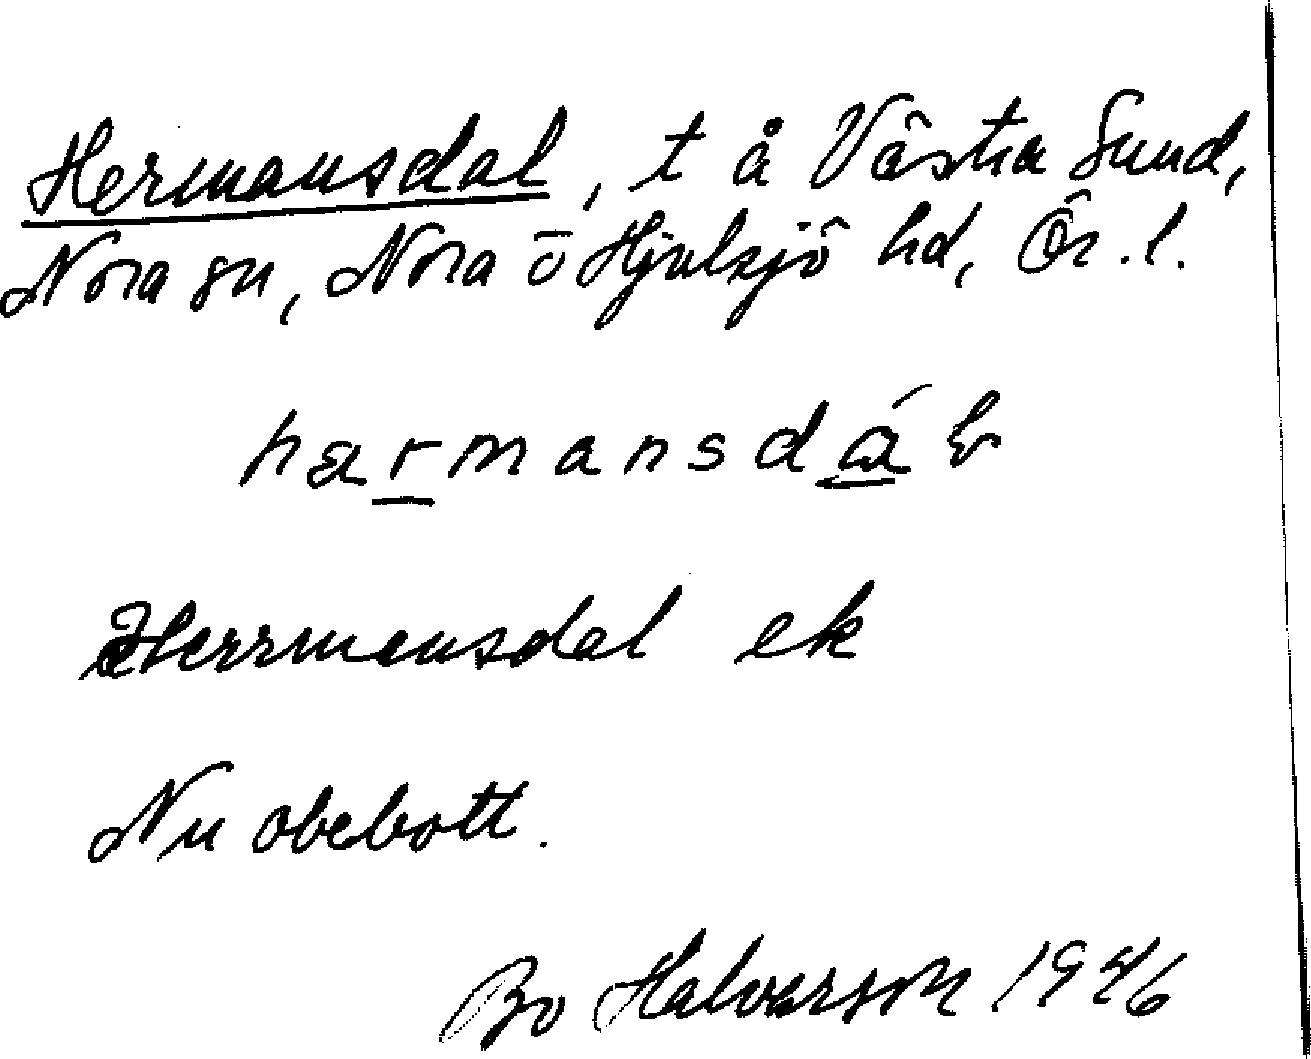 Hermansdal, t å Västra Sund,
Nora sn, Nora ō Hjulsjö hd, Ör. l.
hærmansdáɫ
Herrmansdal ek
Nu obebott.
Bo Halvarson 1946